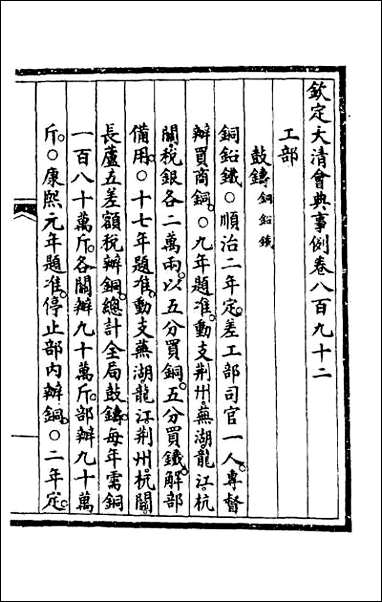 欽定大清會典事例卷八百九十二
工部
鼓鑄銅鉛鐵
銅鉛鐵○順治二年定差工部司官一人專督
辦買商銅○九年題准動支荆州蕪湖龍江杭
關稅銀各二萬兩以五分買銅五分買鐵解部
備用○十七年題准動支蕪湖龍江荆州杭關
長蘆五差額稅辦銅總計全局鼓鑄每年需銅
一百八十萬斤各關辦九十萬斤部辦九十萬
斤○康熙元年題准停止部內辦銅○二年定